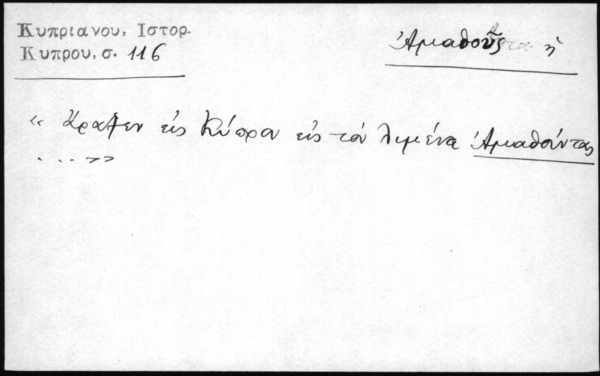 Κυπριανου, Ιστορ.
Κυπρου, σ. 116
Ἀμαθοῦς ἡ
« ἄραξεν εἰς Κύπρον εἰς τὸν λιμένα Ἀμαθούντας
....»